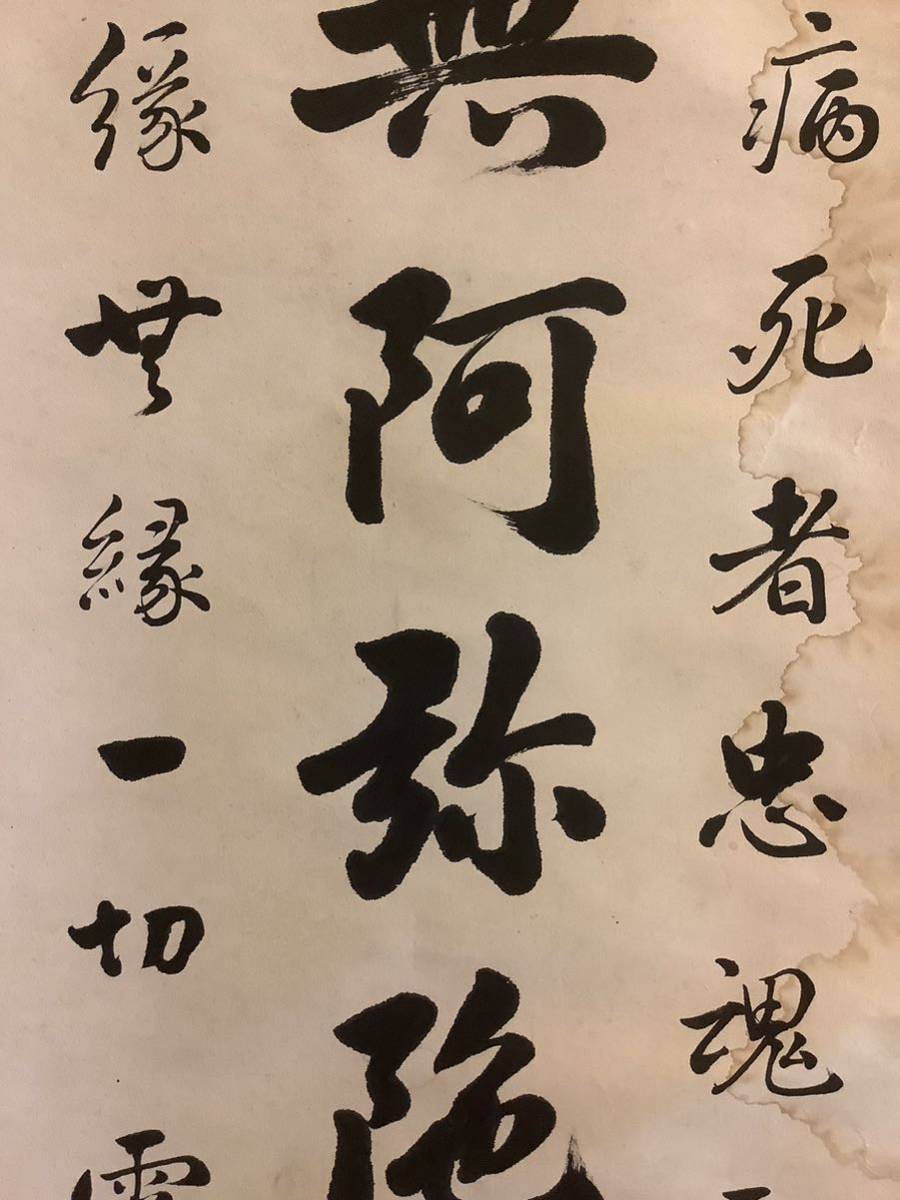 病死者忠魂
無阿弥陀
縁無縁一切霊